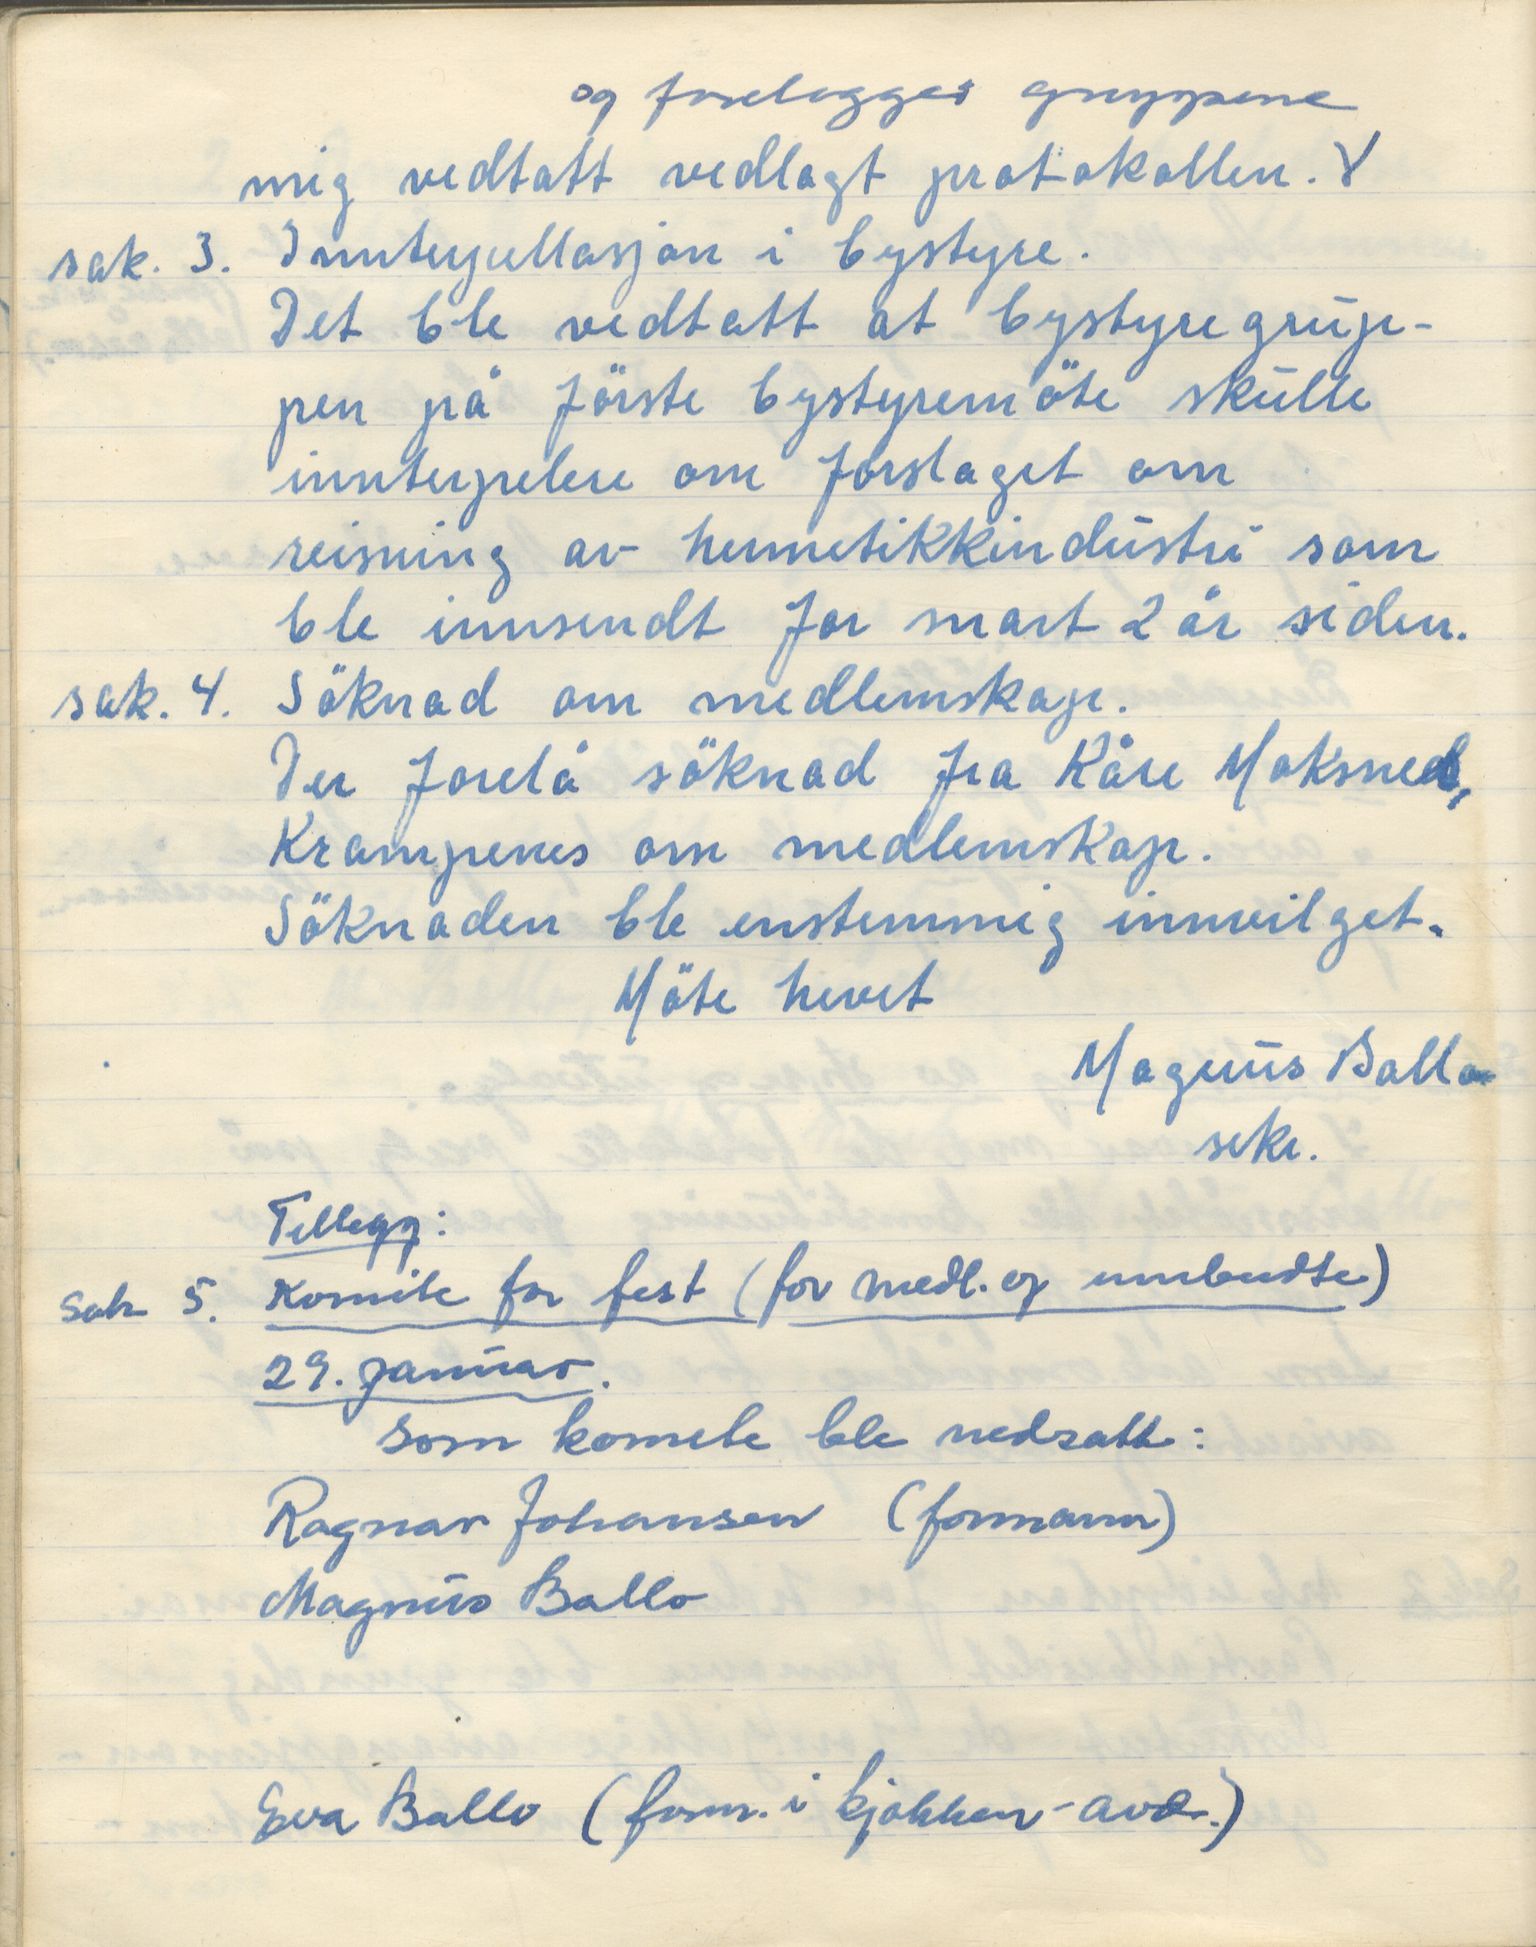 og forelegges gruppene
mig vedtatt vedlagt protokollen. √
sak. 3. Innterpellasjon i bystyre.
Det ble vedtatt at bystyregrup-
pen på förste bystyremöte skulle
innterpelere om forslaget om
reisning av hermetikkindustri som
ble innsendt for snart 2 år siden.
sak. 4. Söknad om medlemskap.
Der forelå söknad fra Kåre Moksnes,
Krampenes om medlemskap.
Söknaden ble enstemmig innvilget.
Möte hevet
Magnus Ballo
sekr.
Tillegg:
Sak 5. Komite for fest (for medl. og innbudte)
29. januar.
Som komite ble nedsatt:
Ragnar Johansen (formann)
Magnus Ballo
Eva Ballo (form. i kjøkken-avd.)